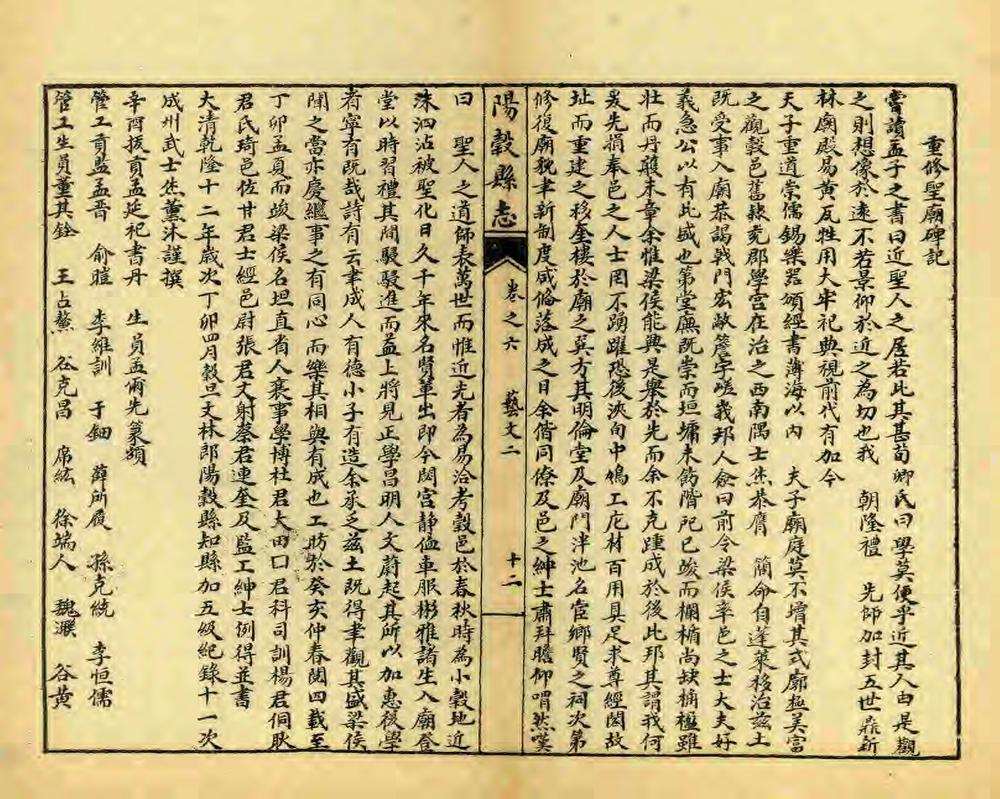 重修聖廟碑記
嘗讀孟子之書曰近聖人之居若此其甚荀卿氏曰學莫便乎近其人由是觀
之則想像於遠不若景仰於近之為切也我 朝隆禮 先師加封五世鼎新
林廟殿易黃瓦牲用大牢祀典視前代有加今
天子重道崇儒錫樂器頒經書薄海以內 夫子廟庭莫不增其式廓極美富
之觀穀邑舊隸兗郡學宮在治之西南隅士烋恭膺 簡命自蓬萊移治茲土
既受事入廟恭謁戟門宏敞簷宇嵯峩邦人僉曰前令梁侯率邑之士大夫好
義急公以有此盛也第堂廡既崇而垣墉未飭階戺已竣而欄楯尚缺桷楹雖
壯而丹雘未章余惟梁侯能興是舉於先而余不克踵成於後此邦其謂我何
爰先捐奉邑之人士罔不踴躍恐後浹旬中鳩工庀材百用具足求尊經閣故
址而重建之移奎樓於廟之巽方其明倫堂及廟門泮池名宦鄉賢之祠次第
修復廟貌聿新制度咸俻落成之日余偕同僚及邑之紳士肅拜瞻仰喟然嘆
陽穀縣志
卷之六 藝文二 十二
曰 聖人之道師表萬世而惟近先者為易洽考穀邑於春秋時為小穀地近
洙泗沾被聖化日久千年來名賢輩出即今閟宮静侐車服彬雅諸生入廟登
堂以時習禮其間駸駸進而益上將見正學昌明人文蔚起其所以加惠後學
者寧有既哉詩有云聿成人有德小子有造余承乏茲土既得聿觀其盛梁侯
聞之當亦慶繼事之有同心而樂其相與有成也工昉於癸亥仲春閱四載至
丁卯孟夏而竣梁侯名坦直省人襄事學博杜君大田口君科司訓楊君侗耿
君氏琦邑佐甘君士經邑尉張君文射蔡君連奎及監工紳士例得並書
大清乾隆十二年歲次丁卯四月穀旦文林郎陽穀縣知縣加五級紀錄十一次
成州武士烋薰沐謹撰
辛酉拔貢孟延祀書丹 生員孟俻先篆額
管工貢監孟晋 俞暄 李維訓 于鈿 薛所履 孫克統 李恒儒
管工生員董其銓 王占鰲 谷克昌 席紘 徐端人 魏灝 谷黃